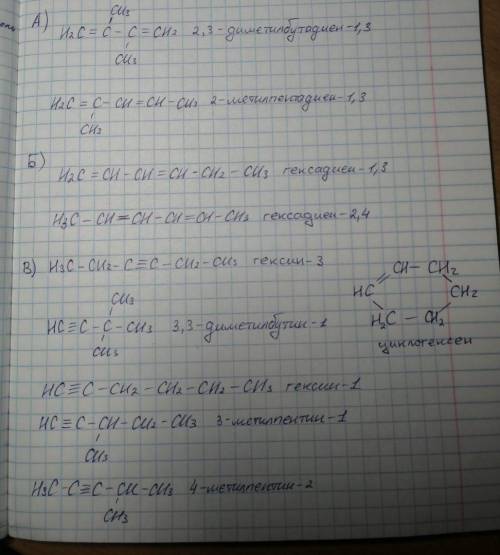 А)
CH3
H2C = C – C = CH2 2,3-диметилбутадиен-1,3
CH3
H2C = C – CH = CH – CH3 2-метилпентадиен-1,3
CH3
Б)
H2C = CH – CH = CH – CH2 – CH3 гексадиен-1,3
H3C – CH = CH – CH = CH – CH3 гексадиен-2,4
В) H3C – CH2 – C ≡ C – CH2 – CH3 гексин-3
CH3
HC ≡ C – C – CH3 3,3-диметилбутин-1
CH3
HC ≡ C – CH2 – CH2 – CH2 – CH3 гексин-1
HC ≡ C – CH – CH2 – CH3 3-метилпентин-1
CH3
H3C – C ≡ C – CH – CH3 4-метилпентин-2
CH3
CH – CH2
HC CH2
H2C – CH2
циклогексен